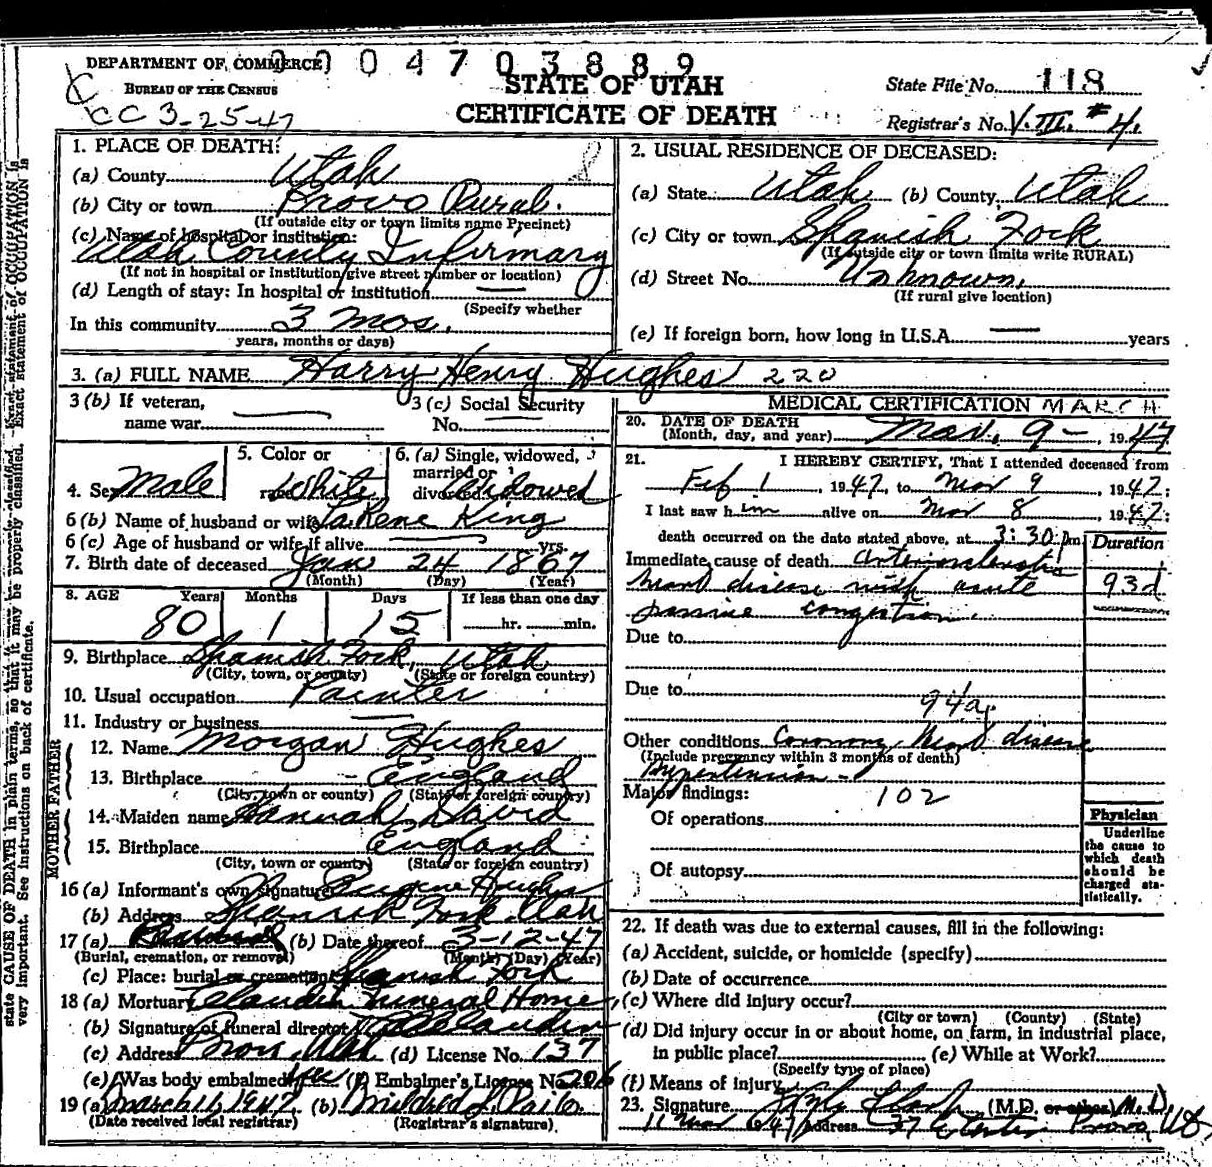 DEPARTMENT OF COMMERCE
BUREAU OF THE CENSUS
0 0 4 7 0 3 8 8 9
CC 3-25-47
STATE OF UTAH
CERTIFICATE OF DEATH
State File No. 118
Registrar's No. V. III. #4.
1. PLACE OF DEATH:
(a) County Utah
(b) City or town Provo Rural.
(If outside city or town limits name Precinct)
(c) Name of hospital or institution:
Utah County Infirmary
(If not in hospital or Institution give street number or location)
(d) Length of stay: In hospital or institution —
(Specify whether
In this community 3 mos.
years, months or days)
2. USUAL RESIDENCE OF DECEASED:
(a) State Utah (b) County Utah
(c) City or town Spanish Fork
(If outside city or town limits write RURAL)
(d) Street No. Unknown.
(If rural give location)
(e) If foreign born, how long in U.S.A. — years
3. (a) FULL NAME Harry Henry Hughes 220
3 (b) If veteran,
name war —
3 (c) Social Security
No. —
4. Sex Male
5. Color or
race White
6. (a) Single, widowed,
married or
divorced Widowed
6 (b) Name of husband or wife LaRene King
6 (c) Age of husband or wife if alive — yrs.
7. Birth date of deceased Jan 24 1867
(Month) (Day) (Year)
8. AGE Years Months Days If less than one day
80 1 15 hr. min.
9. Birthplace Spanish Fork, Utah
(City, town, or county) (State or foreign country)
10. Usual occupation Painter
11. Industry or business —
FATHER
12. Name Morgan Hughes
13. Birthplace - England
(City, town or county) (State or foreign country)
MOTHER
14. Maiden name Hannah David
15. Birthplace England
(City, town or county) (State or foreign country)
16 (a) Informant's own signature Eugene Hughes
(b) Address Spanish Fork Utah
17 (a) Burial (b) Date thereof 3-12-47
(Burial, cremation, or removal) (Month) (Day) (Year)
(c) Place: burial or cremation Spanish Fork
18 (a) Mortuary Claudin Funeral Home
(b) Signature of funeral director Claudin
(c) Address Provo, Utah (d) License No. 137
(e) Was body embalmed? yes (f) Embalmer's License No. 206
19 (a) March 11, 1947. (b) Mildred J.
(Date received local registrar) (Registrar's signature)
MEDICAL CERTIFICATION MARCH
20. DATE OF DEATH
(Month, day, and year) Mar. 9 - , 1947
21. I HEREBY CERTIFY, That I attended deceased from
Feb 1, 1947, to Mar 9, 1947;
I last saw him alive on Mar 8, 1947;
death occurred on the date stated above, at 3:30 pm
Duration
Immediate cause of death Arteriosclerotic
heart disease with acute 93d
passive congestion.
Due to
Due to
94a
Other conditions Coronary Heart disease
(Include pregnancy within 3 months of death)
Hypertension -
Major findings: 102
Of operations
Of autopsy
Physician
Underline
the cause to
which death
should be
charged sta-
tistically.
22. If death was due to external causes, fill in the following:
(a) Accident, suicide, or homicide (specify)
(b) Date of occurrence
(c) Where did injury occur?
(City or town) (County) (State)
(d) Did injury occur in or about home, on farm, in industrial place,
in public place? (e) While at Work?
(Specify type of place)
(f) Means of injury
23. Signature Clark (M.D. or other) M.D.
11 Mar 1947 Address 37 E Center Provo, Ut
state CAUSE OF DEATH in plain terms, so that it may be properly classified. Exact statement of OCCUPATION is
very important. See instructions on back of certificate.